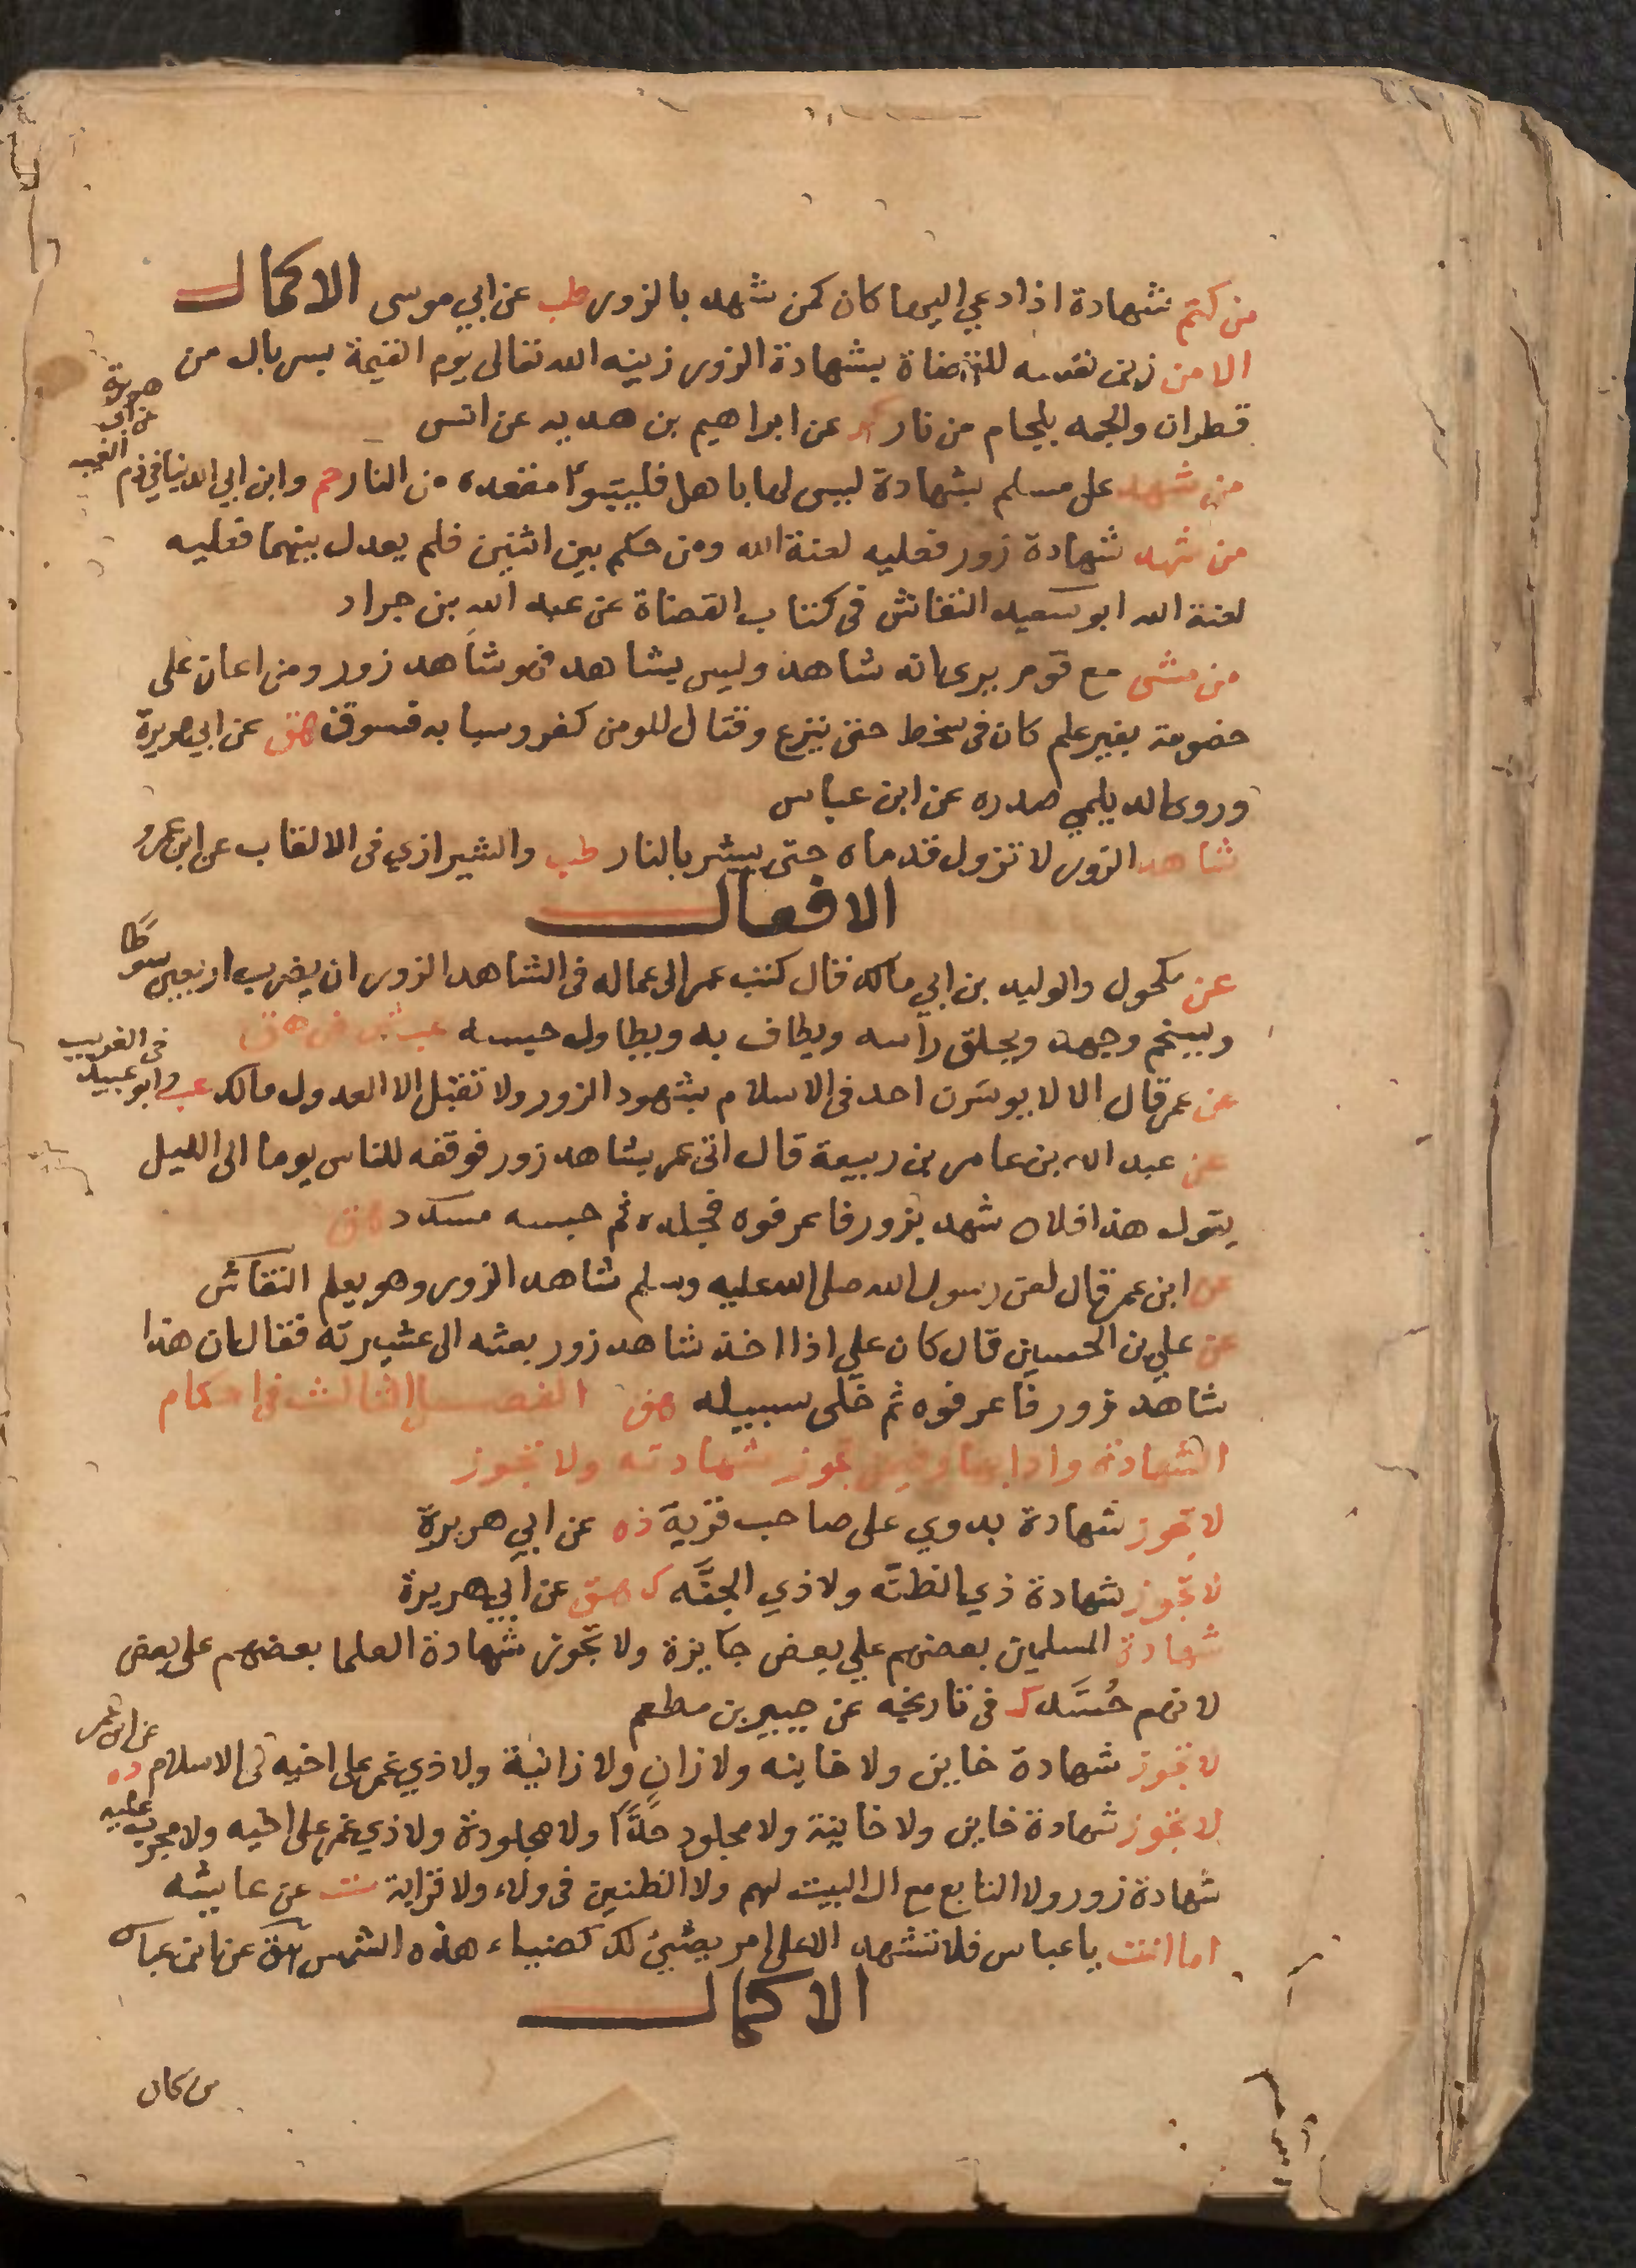 من كتم شهادة اذا دعي اليها كان كمن شهد بالزور طب عن ابي موسى الاكمال
الا من زين نفسه للقضاة بشهادة الزور زينه الله تعالى يوم القيمة بسربال من
قطران والجمه بلجام من نار كر عن ابراهيم بن هدبه عن انس
من شهد على مسلم بشهادة ليس لها باهل فليتبوأ مقعده من النار حم وابن ابي الدنيا في ذم الغيبه عن ابي هريرة
من شهد شهادة زور فعليه لعنة الله ومن حكم بين اثنين فلم يعدل بينهما فعليه
لعنة الله ابو سعيد النقاش في كتاب القضاة عن عبد الله بن جراد
من مشى مع قوم يرى انه شاهد وليس بشاهد فهو شاهد زور ومن اعان على
خصومة بغير علم كان في سخط حتى ينزع وقتال المومن كفر وسبابه فسوق هق عن ابي هريرة
وروى الديلمي صدره عن ابن عباس
شاهد الزور لا تزول قدماه حتى يبشر بالنار طب والشيرازي في الالقاب عن ابن عمرو
الافعال
عن مكحول والوليد بن ابي مالك قال كتب عمر الى عماله في الشاهد الزور ان يضرب اربعين سوطًا
ويسخم وجهه ويحلق رأسه ويطاف به ويطاول حبسه عب ش ص هق
عن عمر قال الا لا يوسرن احد في الاسلام بشهود الزور ولا تقبل الا العدول مالك عب وابو عبيد في الغريب
عن عبد الله بن عامر بن ربيعة قال اتى عمر بشاهد زور فوقفه للناس يوما الى الليل
يقول هذا فلان شهد بزور فاعرفوه فجلده ثم حبسه مسدد هق
عن ابن عمر قال لعن رسول الله صلى الله عليه وسلم شاهد الزور وهو يعلم النقاش
عن علي بن الحسين قال كان علي اذا اخذ شاهد زور بعثه الى عشيرته فقال ان هذا
شاهد زور فاعرفوه ثم خلى سبيله هق الفصل الثالث في احكام
الشهادة وادابها وفيمن تجوز شهادته ولا تجوز
لا تجوز شهادة بدوي على صاحب قرية د ه عن ابي هريرة
لا تجوز شهادة ذي الظنه ولا ذي الجنّه ك هق عن ابي هريرة
شهادة المسلمين بعضهم علي بعض جايزة ولا تجوز شهادة العلما بعضهم على بعض
لانهم حُسَّد ك في تاريخه عن جبير بن مطعم
لا تجوز شهادة خاين ولا خاينه ولا زانٍ ولا زانية ولا ذي غمر على اخيه في الاسلام د ه عن ابن عمر
لا تجوز شهادة خاين ولا خاينة ولا مجلود حدًّا ولا مجلودة ولا ذي غمر على اخيه ولا مجرب عليه
شهادة زور ولا التابع مع ال البيت لهم ولا الظنين في ولاء ولا قرابة ت عن عايشه
اما انت يا عباس فلا تشهد الا على امر يضيئ لك كضياء هذه الشمس هق عن ابن عباس
الاكمال
من كان